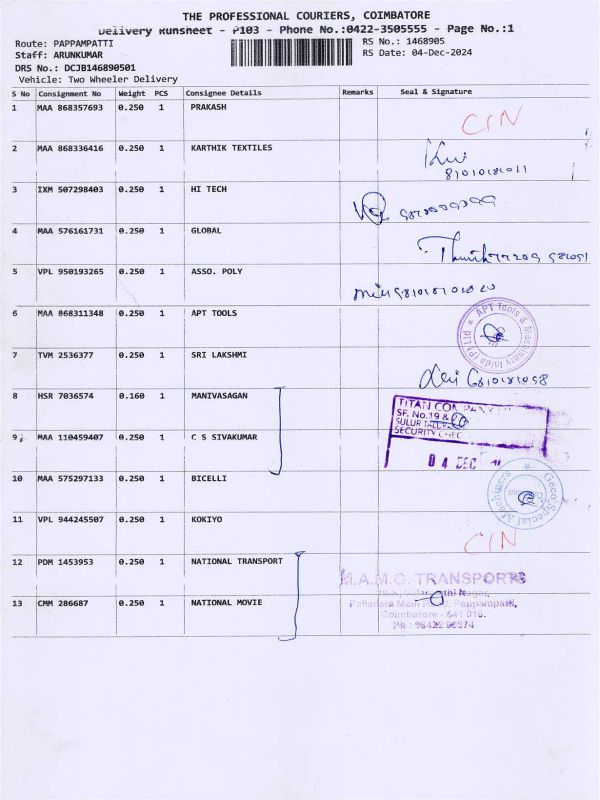 THE PROFESSIONAL COURIERS, COIMBATORE
Delivery Runsheet - P103 - Phone No.:0422-3505555 - Page No.:1
Route: PAPPAMPATTI RS No.: 1468905
Staff: ARUNKUMAR RS Date: 04-Dec-2024
DRS No.: DCJB146890501
Vehicle: Two Wheeler Delivery
S No Consignment No Weight PCS Consignee Details Remarks Seal & Signature
1 MAA 868357693 0.250 1 PRAKASH
CIN
2 MAA 868336416 0.250 1 KARTHIK TEXTILES
3 IXM 507298403 0.250 1 HI TECH
4 MAA 576161731 0.250 1 GLOBAL
5 VPL 950193265 0.250 1 ASSO. POLY
6 MAA 868311348 0.250 1 APT TOOLS
APT Tools & Machinery India (P) Ltd
7 TVM 2536377 0.250 1 SRI LAKSHMI
8 HSR 7036574 0.160 1 MANIVASAGAN
TITAN COMPANY
SF. No.19 &
SULUR TALUK
SECURITY CHEC
9 MAA 110459407 0.250 1 C S SIVAKUMAR
04 DEC
10 MAA 575297133 0.250 1 BICELLI
Geco Special Machiners
11 VPL 944245507 0.250 1 KOKIYO
CIN
12 PDM 1453953 0.250 1 NATIONAL TRANSPORT
M.A.M.O. TRANSPORTS
13 CMM 286687 0.250 1 NATIONAL MOVIE
Palladam Main Road, Pappampati,
Coimbatore - 641 016.